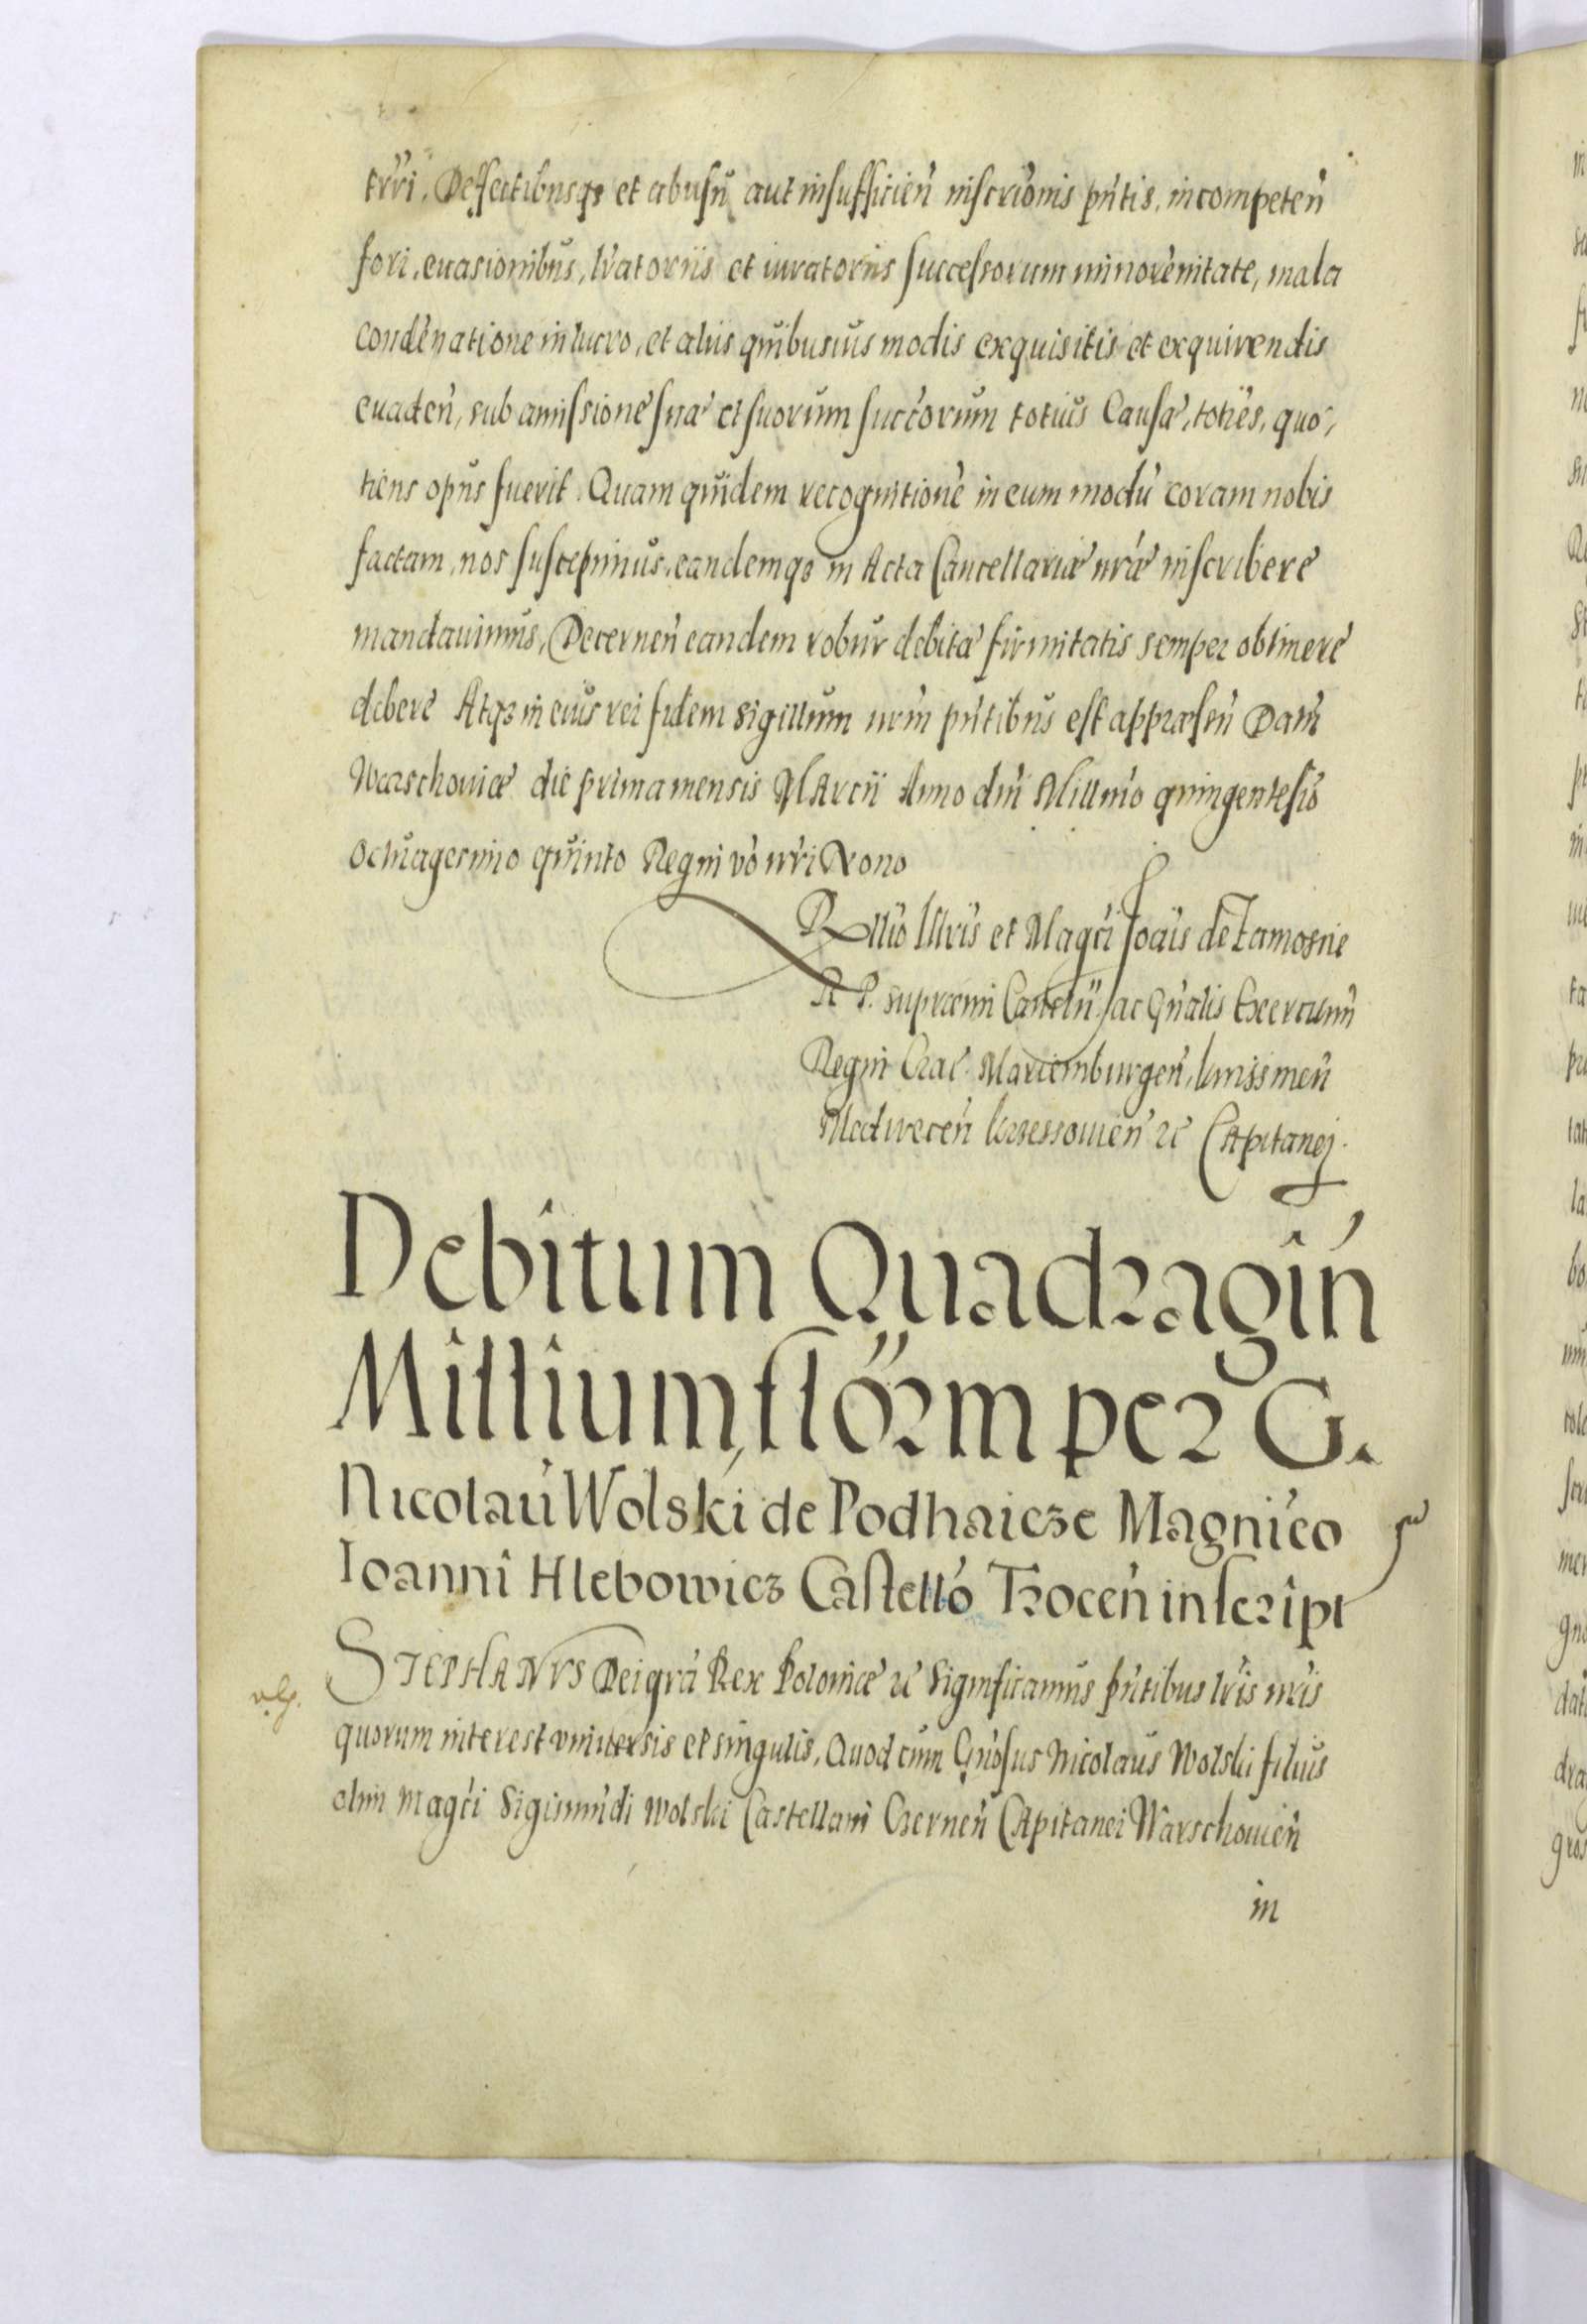 trri. Deffectibusqȝ et abusũ aut insufficien̄ inscriōnis pn̄tis, incompeten̄
fori, euasionibus, lr̄atoriis et iuratoriis successorum minorēnitate, mala
condēnatione in lucro, et aliis quibusuis modis exquisitis et exquirendis
euaden̄, sub amissione suæ et suorum succ̄orum totius Causæ, toties, quo,
tiens opus fuerit. Quam quidem recognitionē in eum modū coram nobis
factam, nos suscepimus, eandemqȝ in Acta Cancellariæ nr̄æ inscribere
mandauimus, Decernen̄ eandem robur debitæ firmitatis semper obtinere
debere Atqȝ in eius rei fidem sigillum nr̄m pn̄tibus est appræssũ Datũ
Warschouiæ die prima mensis MArcii Anno dn̄i Millmō quingentesiō
octuagesimo quinto Regni vō nr̄i Nono
Rllĩo Illrĩs et Magc̄i Joan̄is de Zamoscie
R P. supræmi Canclr̄ii, ac Gn̄alis Exercuum
Regni Crac. Mariemburgen̄, knissinen̄
Miedirecen̄ krzessouien̄ ꝛc CApitanej.
Debitum Quadragin̄
Millium, flōrm per G.
Nicolaū Wolski de Podhaicze Magnīco
Ioanni Hlebowicz Castellō Trocen̄ inscript
STEPHANVS Dei grā Rex Poloniæ ꝛc Significamus pn̄tibus lr̄is nr̄is
quorum interest vniuersis et singulis, Quod cum Gn̄osus Nicolaus Wolski filius
olim Magc̄i Sigismūdi Wolski Castellani Czernen̄ CApitanei Warschouien̄
in